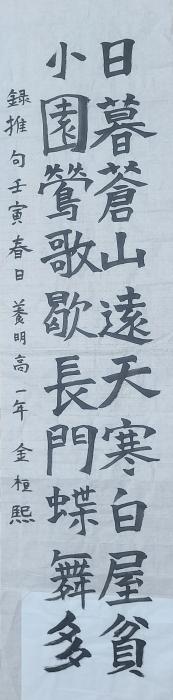 日暮蒼山遠天寒白屋貧
小園鶯歌歇長門蝶舞多
錄推句壬寅春日養明高一年金桓熙